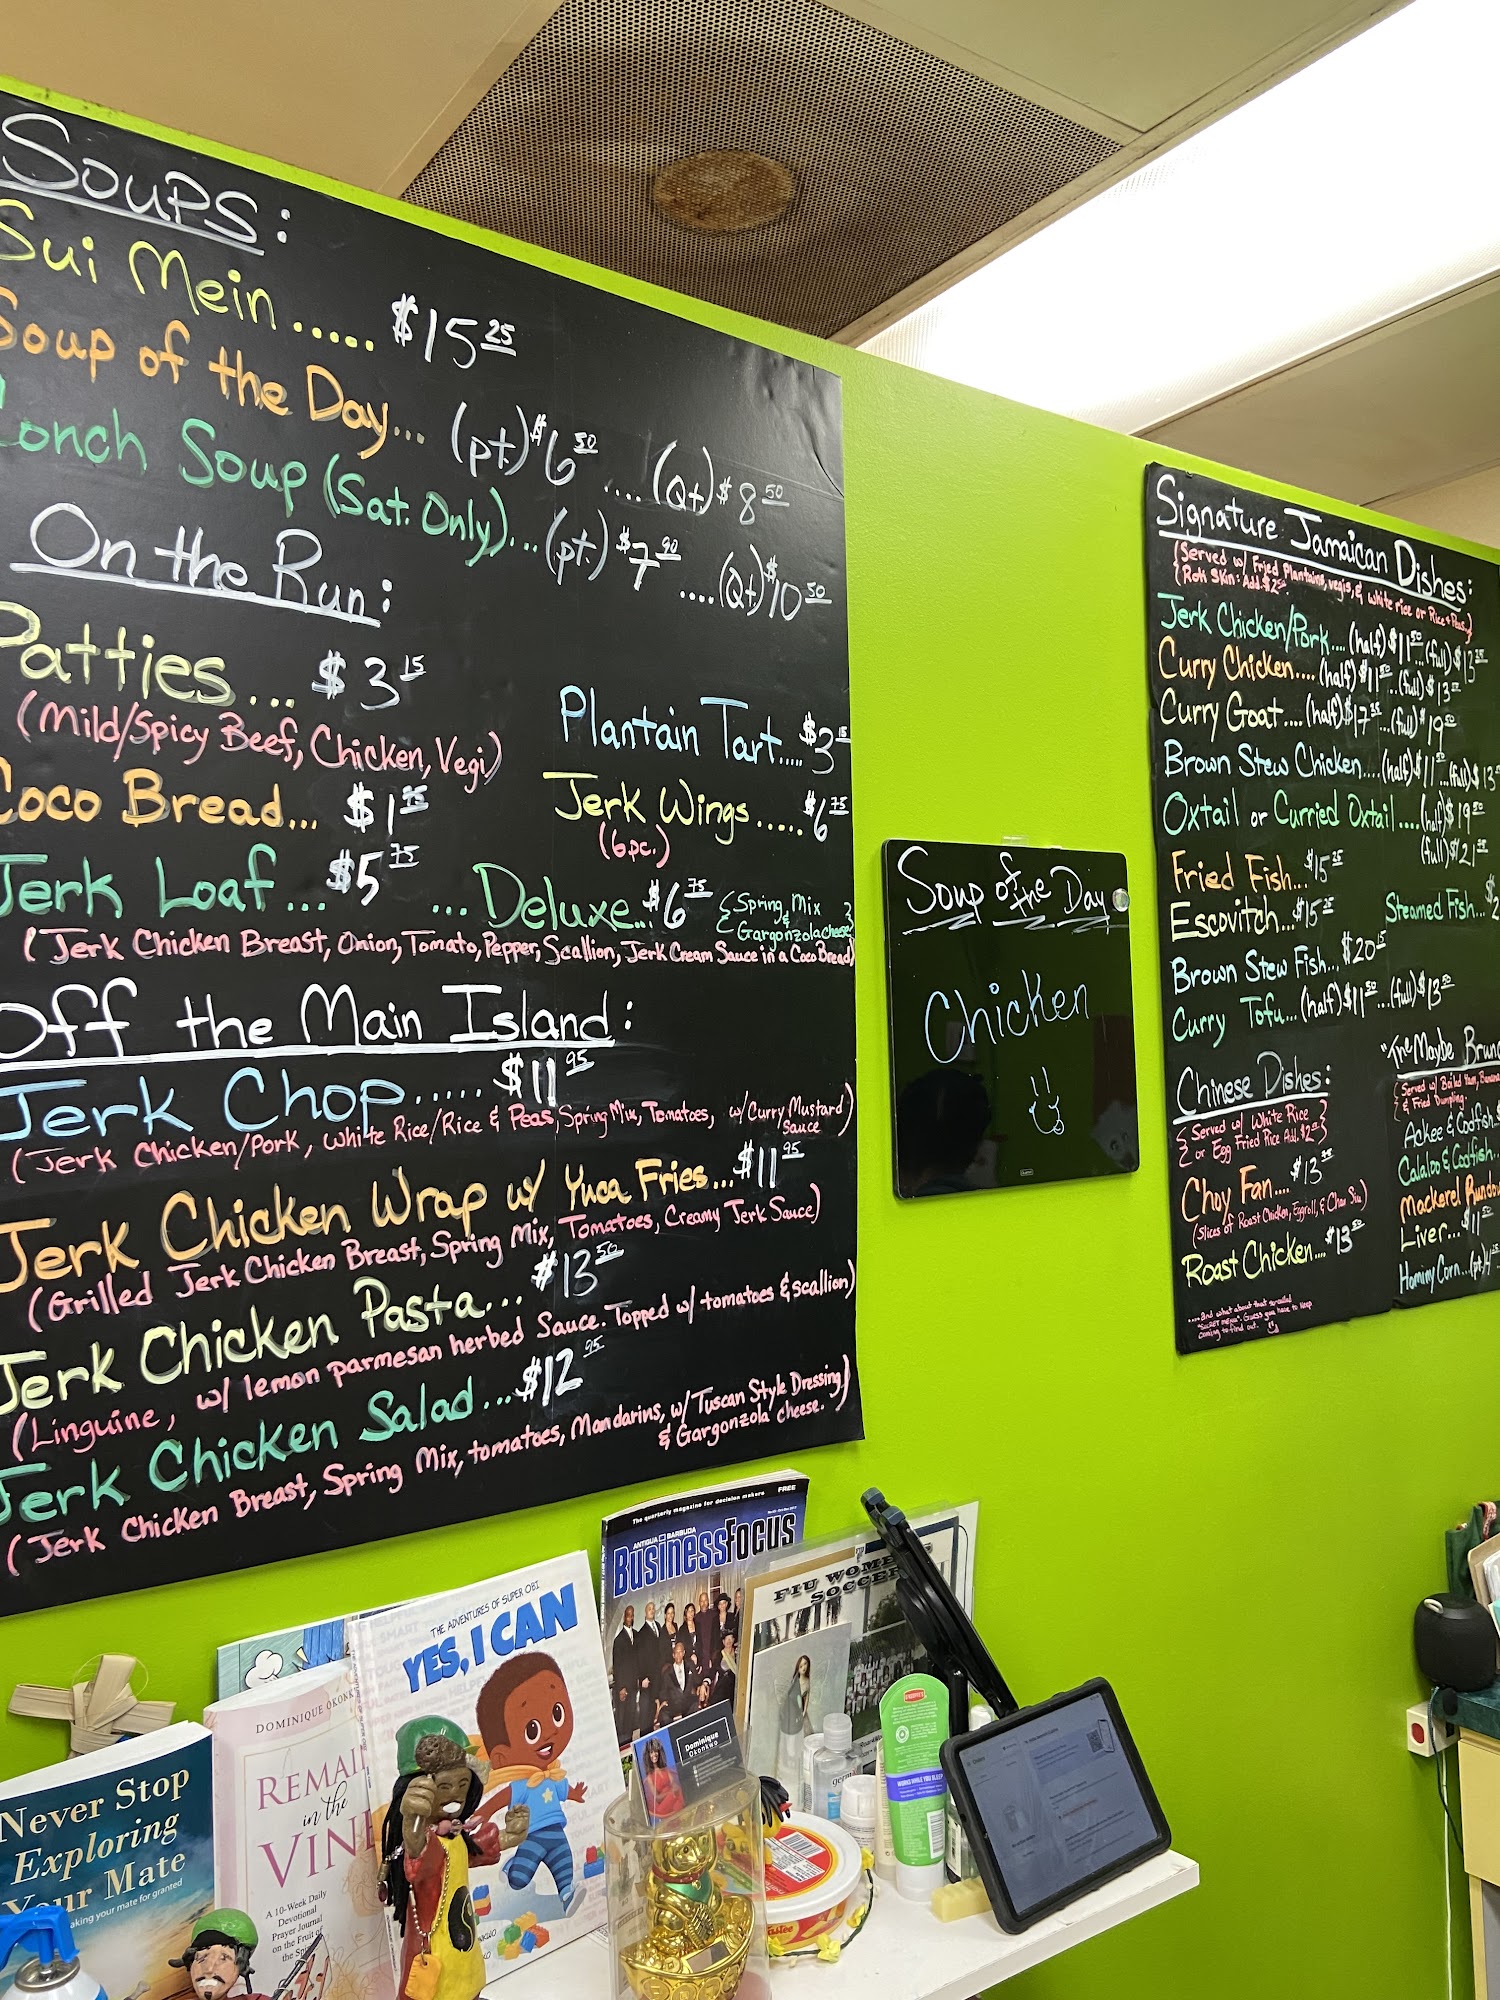 SOUPS:
Sui Mein ..... $15 25
Soup of the Day... (pt.) $6 50 .... (Qt.) $8 50
Conch Soup (Sat. Only)... (pt.) $7 90 .... (Qt.) $10 50
On the Run:
Patties... $3 15
(Mild/Spicy Beef, Chicken, Vegi)
Plantain Tart..... $3 15
Coco Bread... $1 75
Jerk Wings..... $6 75
(6pc.)
Jerk Loaf... $5 75 ... Deluxe... $6 75 {Spring Mix & Gargonzola cheese}
(Jerk Chicken Breast, Onion, Tomato, Pepper, Scallion, Jerk Cream Sauce in a Coco Bread)
Off the Main Island:
Jerk Chop..... $11 95
(Jerk Chicken/Pork, White Rice/Rice & Peas, Spring Mix, Tomatoes, w/ Curry Mustard Sauce)
Jerk Chicken Wrap w/ Yuca Fries... $11 95
(Grilled Jerk Chicken Breast, Spring Mix, Tomatoes, Creamy Jerk Sauce)
Jerk Chicken Pasta... $13 50
(Linguine, w/ lemon parmesan herbed Sauce. Topped w/ tomatoes & scallion)
Jerk Chicken Salad... $12 95
(Jerk Chicken Breast, Spring Mix, tomatoes, Mandarins, w/ Tuscan Style Dressing
& Gargonzola cheese.)
Soup of the Day
Chicken
Signature Jamaican Dishes:
(Served w/ Fried Plantains, vegis, & white rice or Rice & Peas)
(Roti Skin: Add $2
Jerk Chicken/Pork.... (half) $11 50 ...(full) $13 25
Curry Chicken.... (half) $11 50 ...(full) $13
Curry Goat.... (half) $17 ...(full) $19
Brown Stew Chicken.... (half) $11 ...(full) $13
Oxtail or Curried Oxtail.... (half) $19
(full) $21
Fried Fish... $15 25
Escovitch... $15 25
Steamed Fish... $2
Brown Stew Fish... $20 15
Curry Tofu... (half) $11 50 ...(full) $13 50
Chinese Dishes:
{Served w/ White Rice
or Egg Fried Rice Add. $2
Choy Fan.... $13
(Slices of Roast Chicken, Eggroll, & Char Siu)
Roast Chicken.... $13 50
....And what about that so-called
"SECRET MENU". Guess you have to keep
coming to find out.
"The Maybe Brun
(Served w/ Boiled Yam, Banana
& Fried Dumpling
Ackee & Codfish
Calaloo & Codfish..
Mackerel Rundo
Liver... $11 50
Hominy Corn... (pt.) 4
The quarterly magazine for decision makers
FREE
ANTIGUA BARBUDA
BusinessFocus
FIU WOMEN'S
SOCCER
THE ADVENTURES OF SUPER OBI
YES, I CAN
DOMINIQUE OKONK
REMAI
in the
VINE
A 10-Week Daily
Devotional
Prayer Journal
on the Fruit of
the Spi
Never Stop
Exploring
Your Mate
aking your mate for granted
Dominique
Okonkwo
germ
WORKS WHILE YOU SLEEP